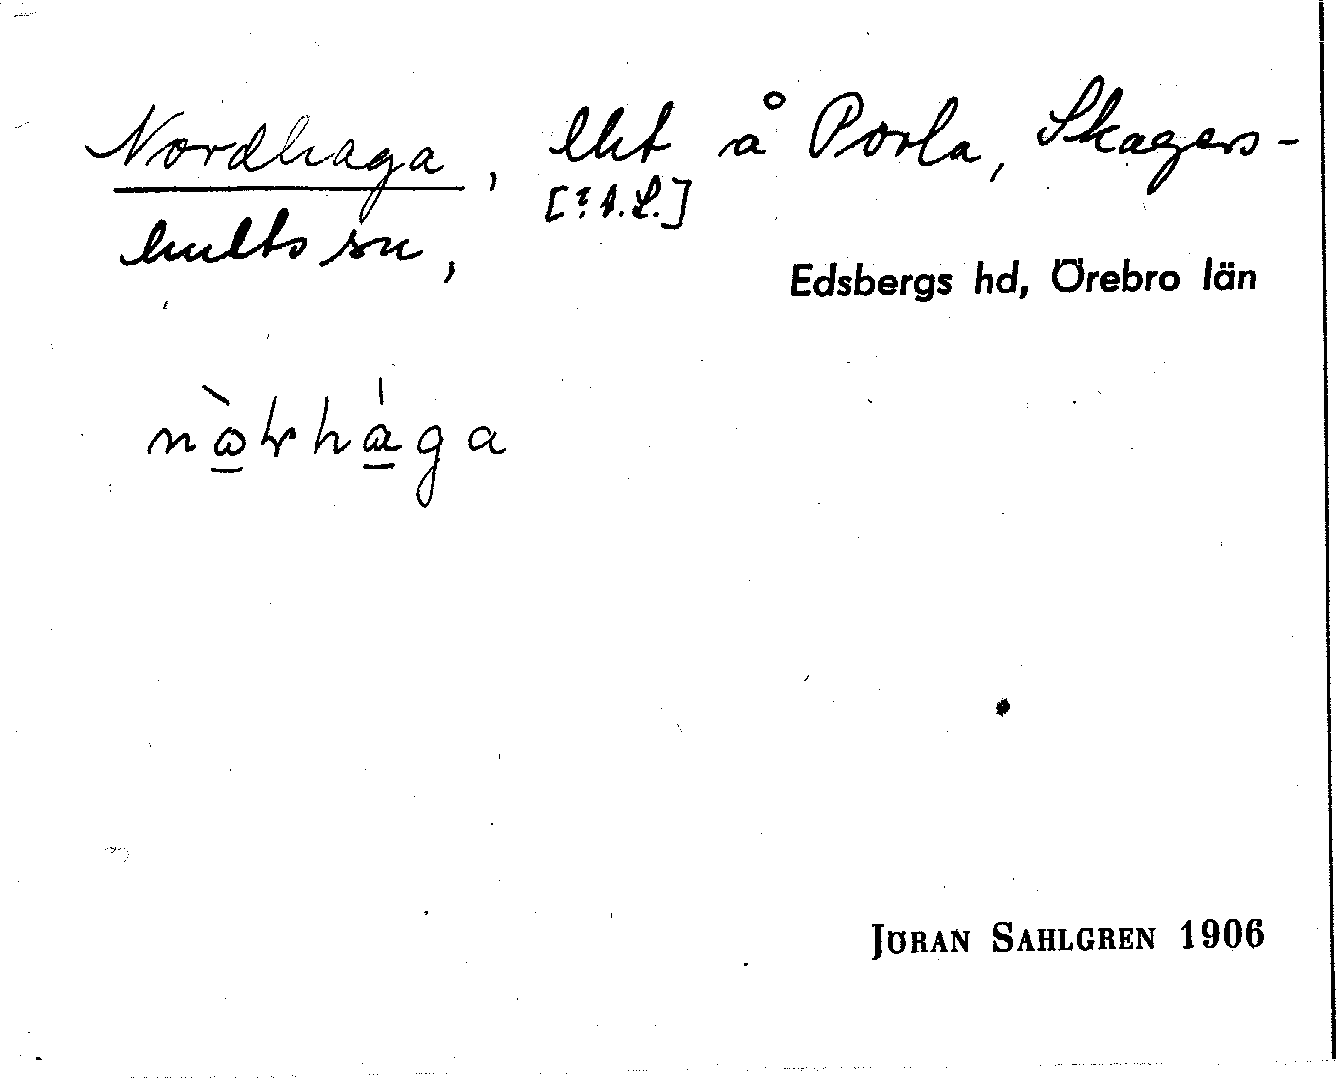 Nordhaga, lht å Porla, Skagers-
[? A.L.]
hults sn,
Edsbergs hd, Örebro län
JÖRAN SAHLGREN 1906